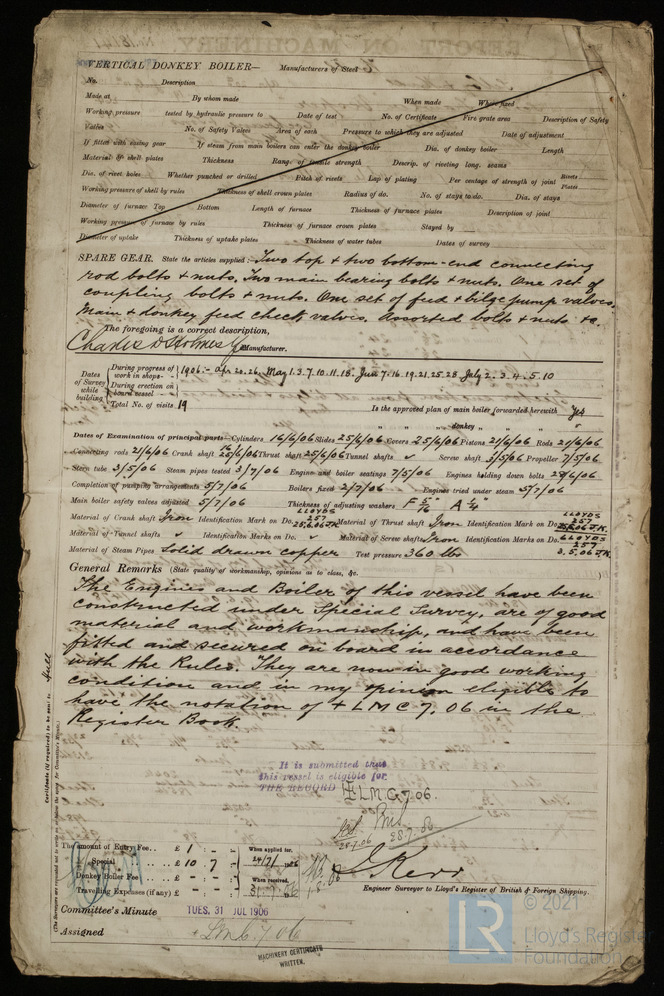 VERTICAL DONKEY BOILER— Manufacturers of Steel
No. Description
Made at By whom made When made Where fixed
Working pressure tested by hydraulic pressure to Date of test No. of Certificate Fire grate area Description of Safety
Valves No. of Safety Valves Area of each Pressure to which they are adjusted Date of adjustment
If fitted with easing gear If steam from main boilers can enter the donkey boiler Dia. of donkey boiler Length
Material of shell plates Thickness Range of tensile strength Descrip. of riveting long. seams
Dia. of rivet holes Whether punched or drilled Pitch of rivets Lap of plating Per centage of strength of joint Rivets Plates
Working pressure of shell by rules Thickness of shell crown plates Radius of do. No. of stays to do. Dia. of stays
Diameter of furnace Top Bottom Length of furnace Thickness of furnace plates Description of joint
Working pressure of furnace by rules Thickness of furnace crown plates Stayed by
Diameter of uptake Thickness of uptake plates Thickness of water tubes Dates of survey
SPARE GEAR. State the articles supplied:— Two top + two bottom-end connecting
rod bolts + nuts. Two main bearing bolts + nuts. One set of
coupling bolts + nuts. One set of feed + bilge pump valves.
Main + donkey feed check valves. Assorted bolts + nuts &c.
The foregoing is a correct description,
Charles D Holmes Manufacturer.
Dates of Survey while building
During progress of work in shops - - 1906:- Apr 20. 26. May 1. 3. 7. 10. 11. 18. Jun 7. 16. 19. 21. 25. 28 July 2. 3. 4. 5. 10
During erection on board vessel - - -
Total No. of visits 19
Is the approved plan of main boiler forwarded herewith Yes
" " " donkey " " "
Dates of Examination of principal parts—Cylinders 16/6/06 Slides 25/6/06 Covers 25/6/06 Pistons 21/6/06 Rods 21/6/06
Connecting rods 21/6/06 Crank shaft 25/6/06 Thrust shaft 25/6/06 Tunnel shafts ✓ Screw shaft 3/5/06 Propeller 7/5/06
Stern tube 3/5/06 Steam pipes tested 3/7/06 Engine and boiler seatings 7/5/06 Engines holding down bolts 28/6/06
Completion of pumping arrangements 5/7/06 Boilers fixed 2/7/06 Engines tried under steam 5/7/06
Main boiler safety valves adjusted 5/7/06 Thickness of adjusting washers F A
Material of Crank shaft Iron Identification Mark on Do. LLOYDS 257 25.6.06 Material of Thrust shaft Iron Identification Mark on Do. LLOYDS 257 25.6.06 J.K.
Material of Tunnel shafts ✓ Identification Marks on Do. ✓ Material of Screw shafts Iron Identification Marks on Do. LLOYDS 257 3.5.06 J.K.
Material of Steam Pipes Solid drawn copper Test pressure 360 lbs
General Remarks (State quality of workmanship, opinions as to class, &c.
The Engines and Boiler of this vessel have been
constructed under Special Survey, are of good
material and workmanship, and have been
fitted and secured on board in accordance
with the Rules. They are now in good working
condition and in my opinion eligible to
have the notation of + LMC 7.06 in the
Register Book.
Certificate (if required) to be sent to Hull
(The Surveyors are requested not to write on or below the space for Committee's Minute.)
It is submitted that
this vessel is eligible for
THE RECORD + LMC 7.06.
28.7.06
28.7.06
The amount of Entry Fee . . £ 1 : - : - When applied for,
Special . . . . £ 10 : 7 : - 24/7/1906
Donkey Boiler Fee . . . £ : : When received,
Travelling Expenses (if any) £ : : 31.7.06
J. Kerr
Engineer Surveyor to Lloyd's Register of British & Foreign Shipping.
Committee's Minute TUES. 31 JUL 1906
Assigned + LMC 7.06
MACHINERY CERTIFICATE
WRITTEN.
LR
© 2021
Lloyd's Register
Foundation